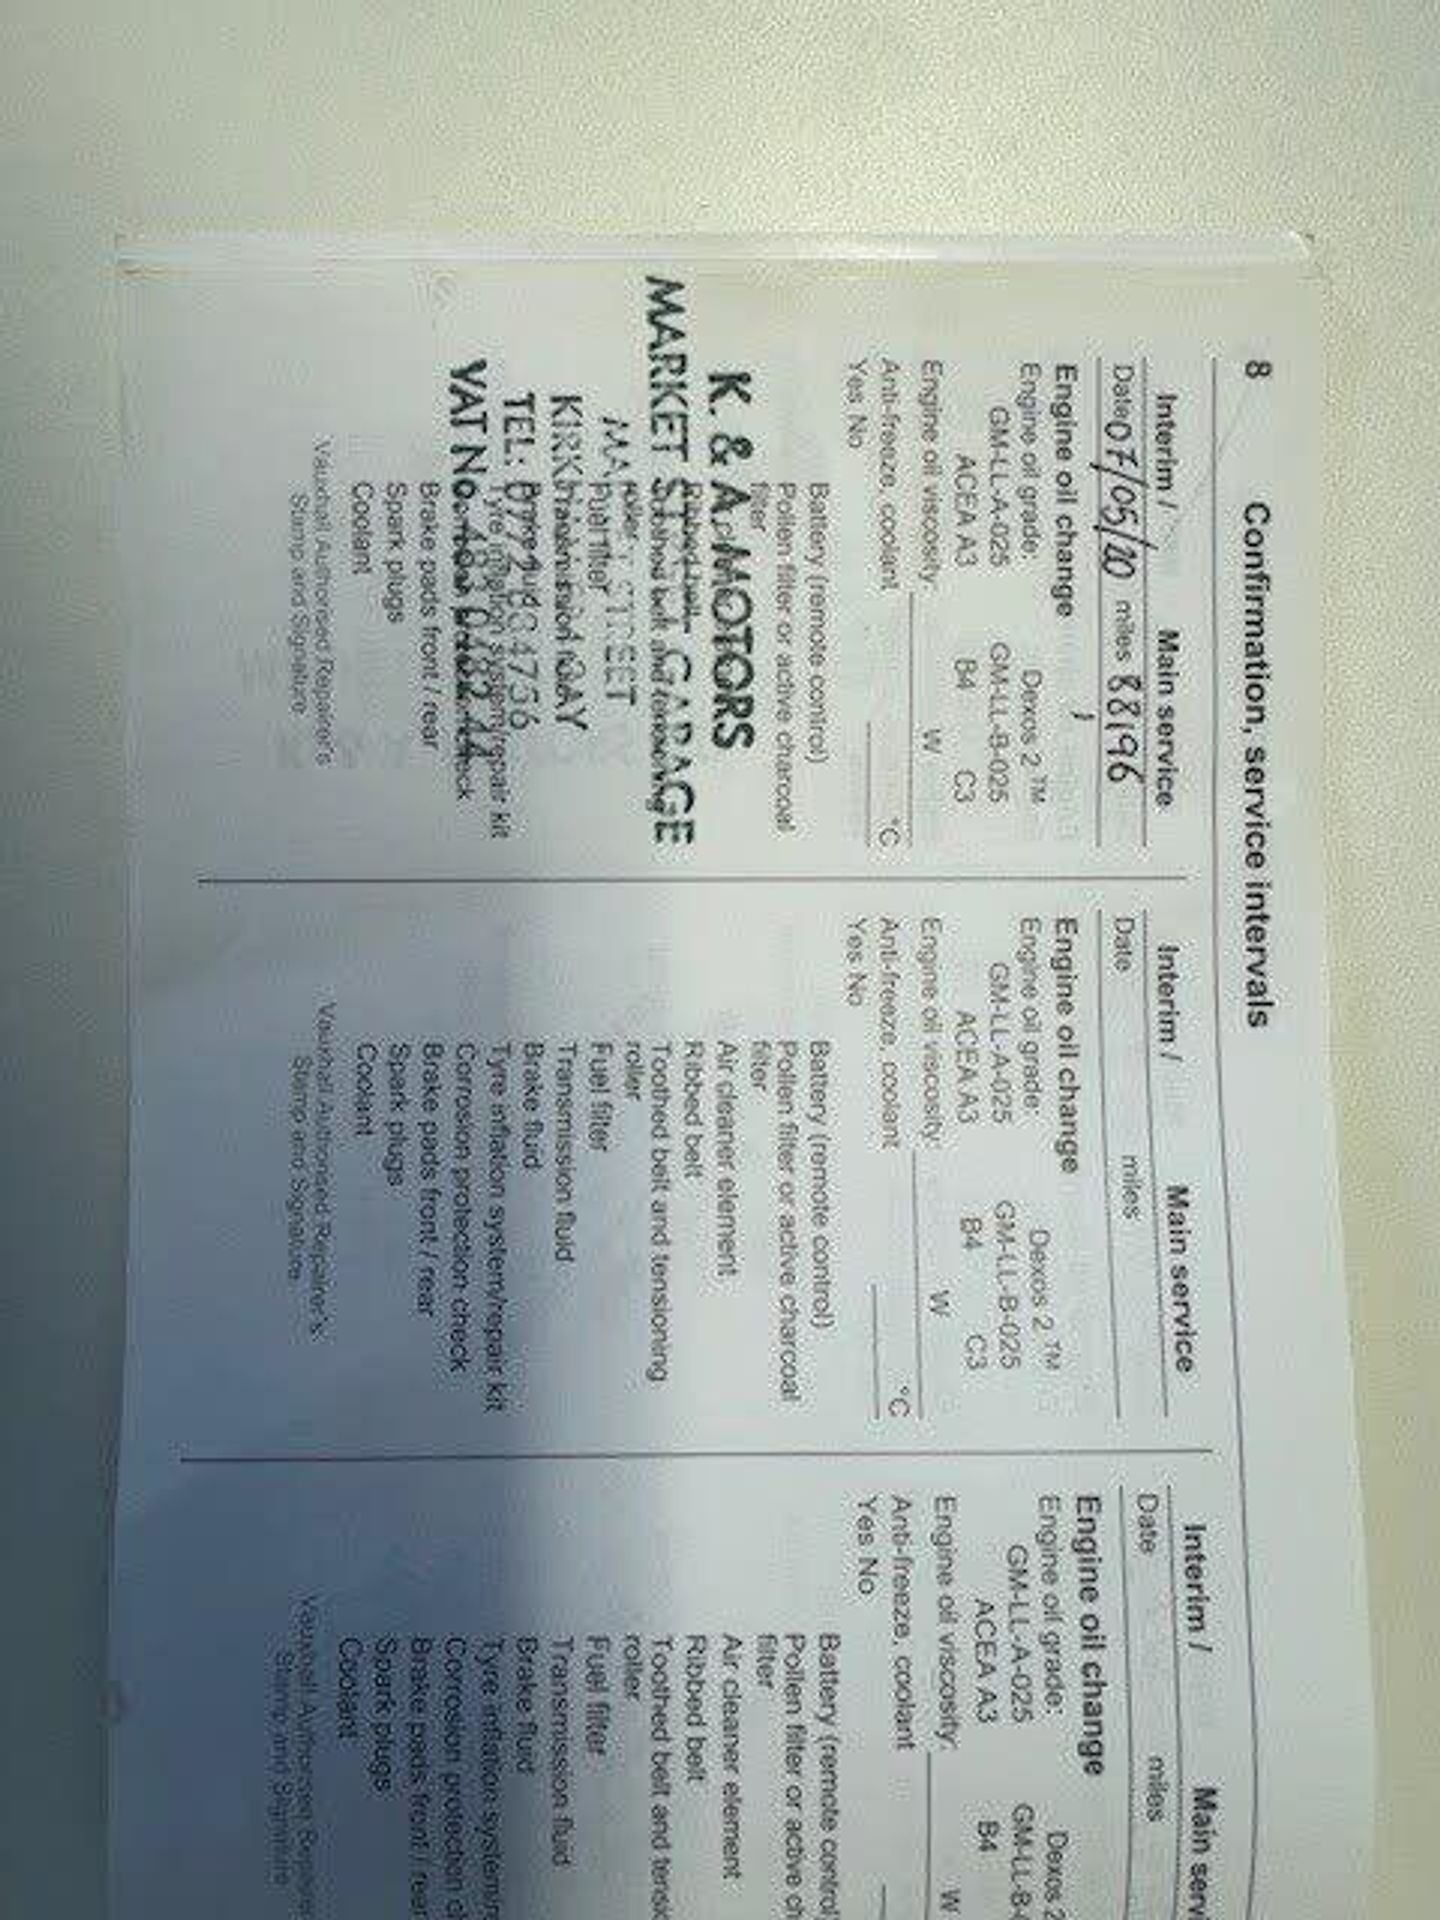 8 Confirmation, service intervals
Interim / Main service
Date 07/05/20 miles 88196
Engine oil change
Engine oil grade: Dexos 2 TM
GM-LL-A-025 GM-LL-B-025
ACEA A3 B4 C3
Engine oil viscosity: W
Anti-freeze, coolant °C
Yes No
Battery (remote control)
Pollen filter or active charcoal
filter
K. & A. MOTORS
Ribbed belt
MARKET ST. GARAGE
Toothed belt and tensioning
roller
STREET
Fuel filter
Transmission fluid
TEL:
Tyre inflation system/repair kit
VAT No.
Brake pads front / rear
Spark plugs
Coolant
Vauxhall Authorised Repairer's
Stamp and Signature
Interim / Main service
Date miles
Engine oil change
Engine oil grade: Dexos 2 TM
GM-LL-A-025 GM-LL-B-025
ACEA A3 B4 C3
Engine oil viscosity: W
Anti-freeze, coolant °C
Yes No
Battery (remote control)
Pollen filter or active charcoal
filter
Air cleaner element
Ribbed belt
Toothed belt and tensioning
roller
Fuel filter
Transmission fluid
Brake fluid
Tyre inflation system/repair kit
Corrosion protection check
Brake pads front / rear
Spark plugs
Coolant
Vauxhall Authorised Repairer's
Stamp and Signature
Interim / Main servi
Date miles
Engine oil change
Engine oil grade: Dexos 2
GM-LL-A-025 GM-LL-B-
ACEA A3 B4
Engine oil viscosity: W
Anti-freeze, coolant
Yes No
Battery (remote control)
Pollen filter or active ch
filter
Air cleaner element
Ribbed belt
Toothed belt and tensio
roller
Fuel filter
Transmission fluid
Brake fluid
Tyre inflation system/re
Corrosion protection ch
Brake pads front / rear
Spark plugs
Coolant
Vauxhall Authorised Repairer
Stamp and Signature